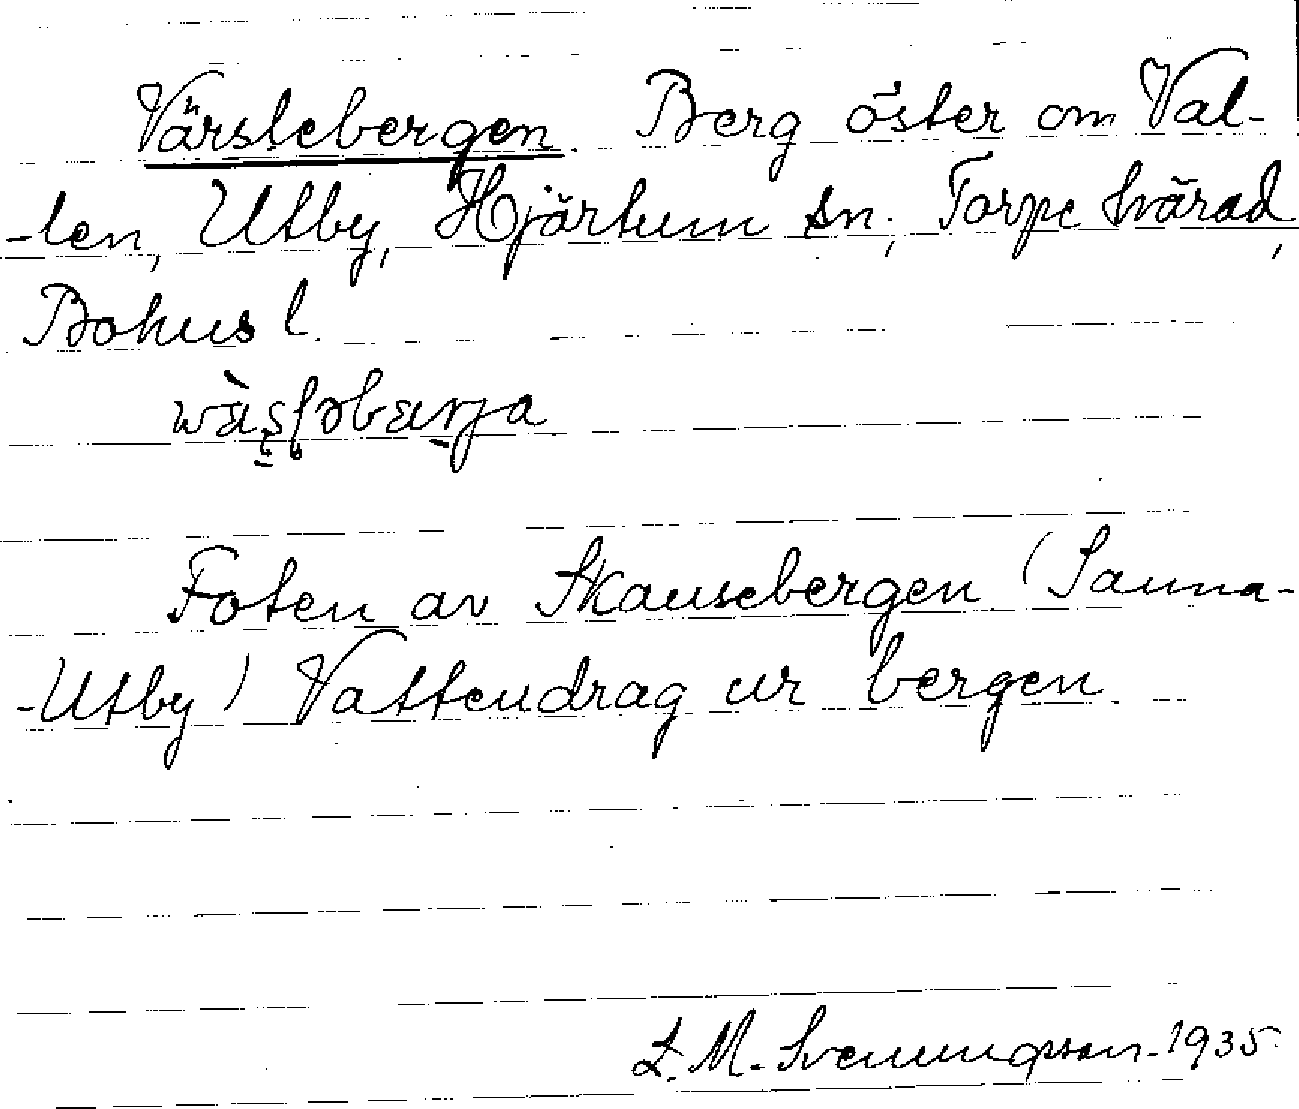 Värslebergen. Berg öster om Val-
-len, Utby, Hjärtum sn; Torpe härad,
Bohus l.
wàʂɭəbærja
Foten av Skausebergen (Sauna-
-Utby) Vattendrag ur bergen.
L. M. Svenungsson - 1935